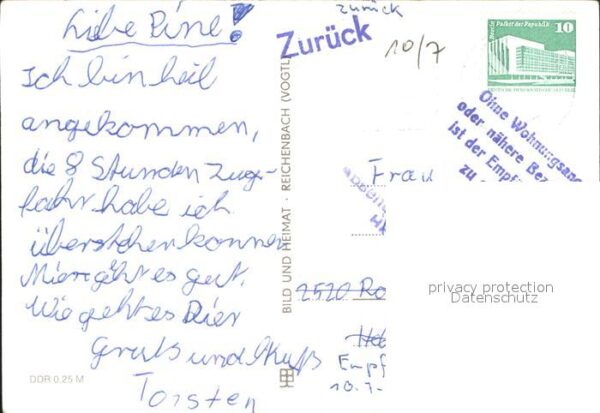 Liebe Pine!
Ich bin heil
angekommen,
die 8 Stunden Zug-
fahrt habe ich
überstehen können
Mier geht es gut.
Wie geht es Dier
Gruß und Kuß
Torsten
DDR 0.25 M
BILD UND HEIMAT · REICHENBACH (VOGTL
zurück
Zurück
10/7
Berlin Palast der Republik
10
Ohne Wohnungsang
oder nähere Bez
ist der Empf
zu
Frau
2520 Ro
Empf
10.7.
privacy protection
Datenschutz